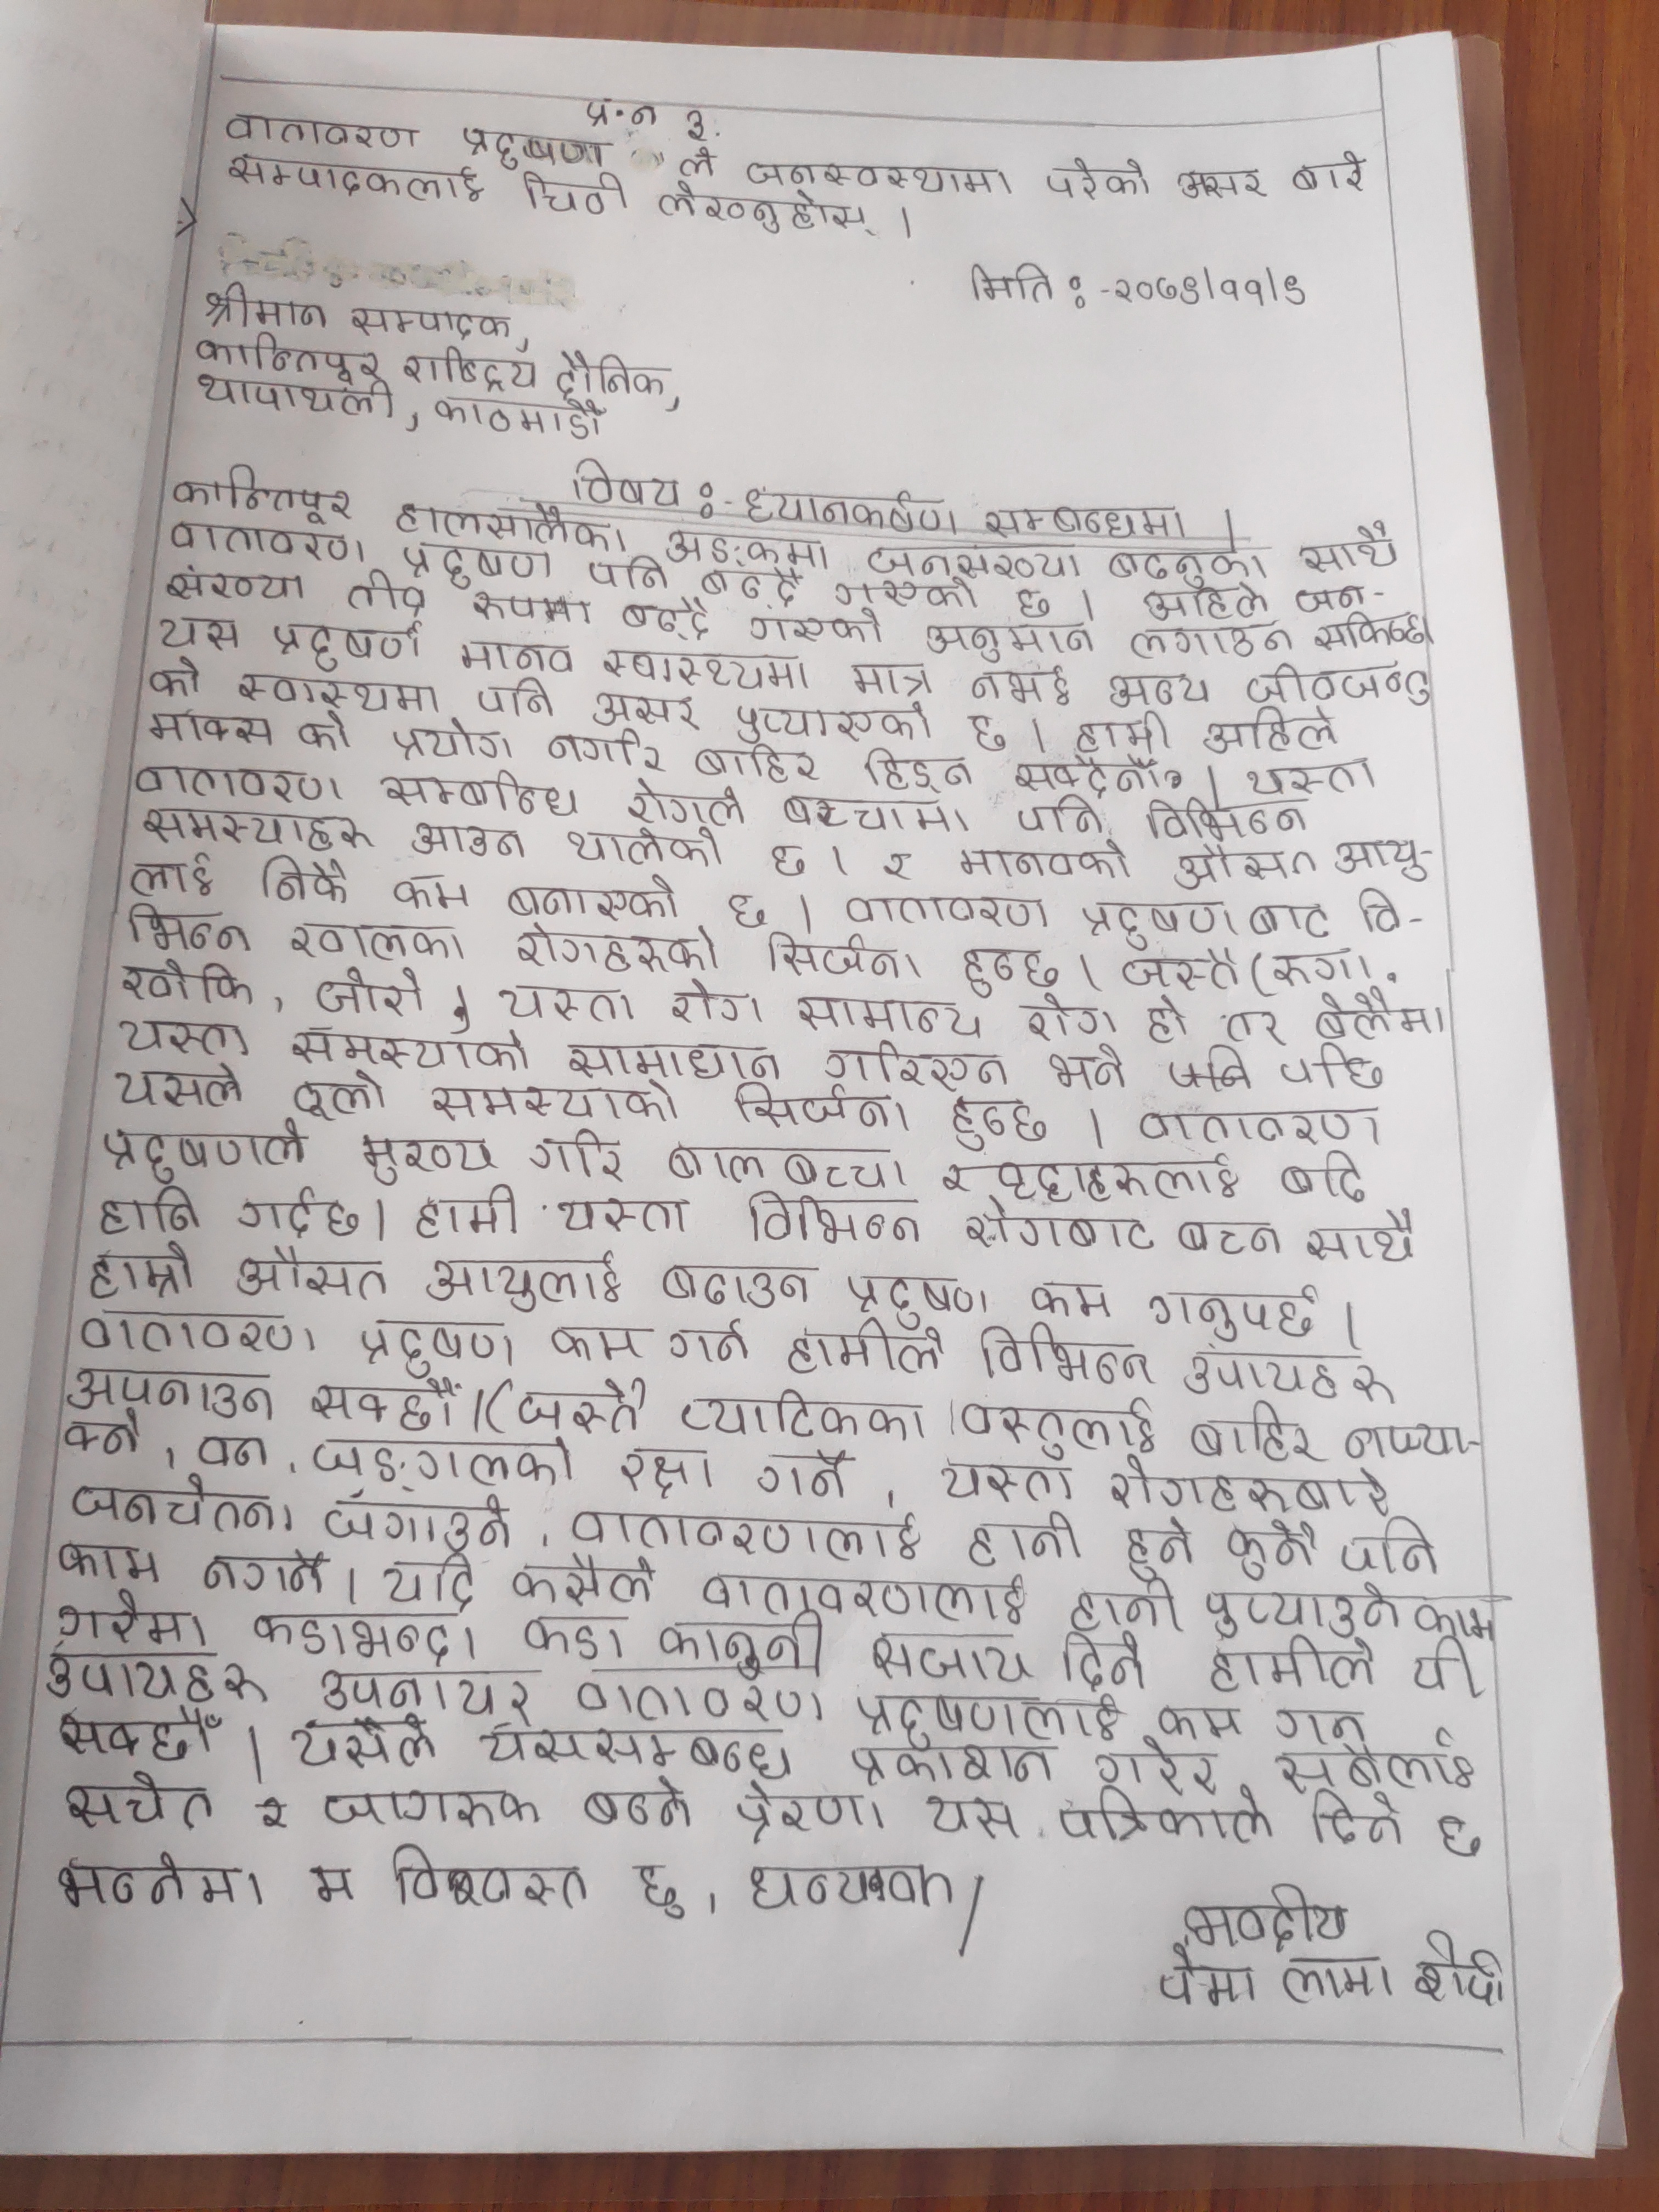 प्र.न ३.
वातावरण प्रदुषण ले जनस्वस्थामा परेको असर बारे
सम्पादकलाई चिठी लेख्नुहोस् ।
मिति :-२०७९/११/९
श्रीमान सम्पादक,
कान्तिपूर राष्ट्रिय दैनिक,
थापाथली, काठमाडौं
विषय :- ध्यानकर्षण सम्बन्धमा ।
कान्तिपूर हालसालैका अङ्कमा जनसंख्या बढ्नुका साथै
वातावरण प्रदुषण पनि बढ्दै गएको छ । अहिले जन-
संख्या तीव्र रुपमा बढ्दै गएको अनुमान लगाउन सकिन्छ।
यस प्रदुषर्ण मानव स्वास्थ्यमा मात्र नभई अन्य जीवजन्तु
को स्वास्थमा पनि असर पुऱ्याएको छ । हामी अहिले
माक्स को प्रयोग नगरि बाहिर हिड्न सक्दैनौं । यस्ता
वातावरण सम्बन्धि रोगले बच्चामा पनि विभिन्न
समस्याहरु आउन थालेको छ । र मानवको औसत आयु-
लाई निकै कम बनाएको छ । वातावरण प्रदुषण बाट वि-
भिन्न खालका रोगहरुको सिर्जना हुन्छ । जस्तै (रुगा,
खोकि, जोरो, यस्ता रोग सामान्य रोग हो तर बेलैमा
यस्ता समस्याको सामाधान गरिएन भने पनि पछि
यसले ठूलो समस्याको सिर्जना हुन्छ । वातावरण
प्रदुषणले मुख्य गरि बालबच्चा र वृद्दाहरुलाई बढि
हानि गर्दछ। हामी यस्ता विभिन्न रोगबाट बच्न साथै
हाम्रो औसत आयुलाई बढाउन प्रदुषण कम गनुपर्छ ।
वातावरण प्रदुषण कम गर्न हामीले विभिन्न उपायहरु
अपनाउन सक्छौं ।(जस्तै प्याटिकका वस्तुलाई बाहिर नफ्या-
क्ने, वन, जङ्गलको रक्षा गर्ने, यस्ता रोगहरुबारे
जनचेतना जगाउने, वातावरणलाई हानी हुने कुनै पनि
काम नगर्ने । यदि कसैले वातावरणलाई हानी पुऱ्याउने काम
गरेमा कडाभन्दा कडा कानुनी सजाय दिने हामीले यी
उपायहरु उपनायर वातावरण प्रदुषणलाई कम गन
सक्छौँ । यसैले यससम्बन्ध प्रकाशन गरेर सबैलाई
सचेत र जागरुक बन्ने प्रेरणा यस पत्रिकाले दिने छ
भन्नेमा म विश्वस्त छु,
भवदीय
पेमा लामा